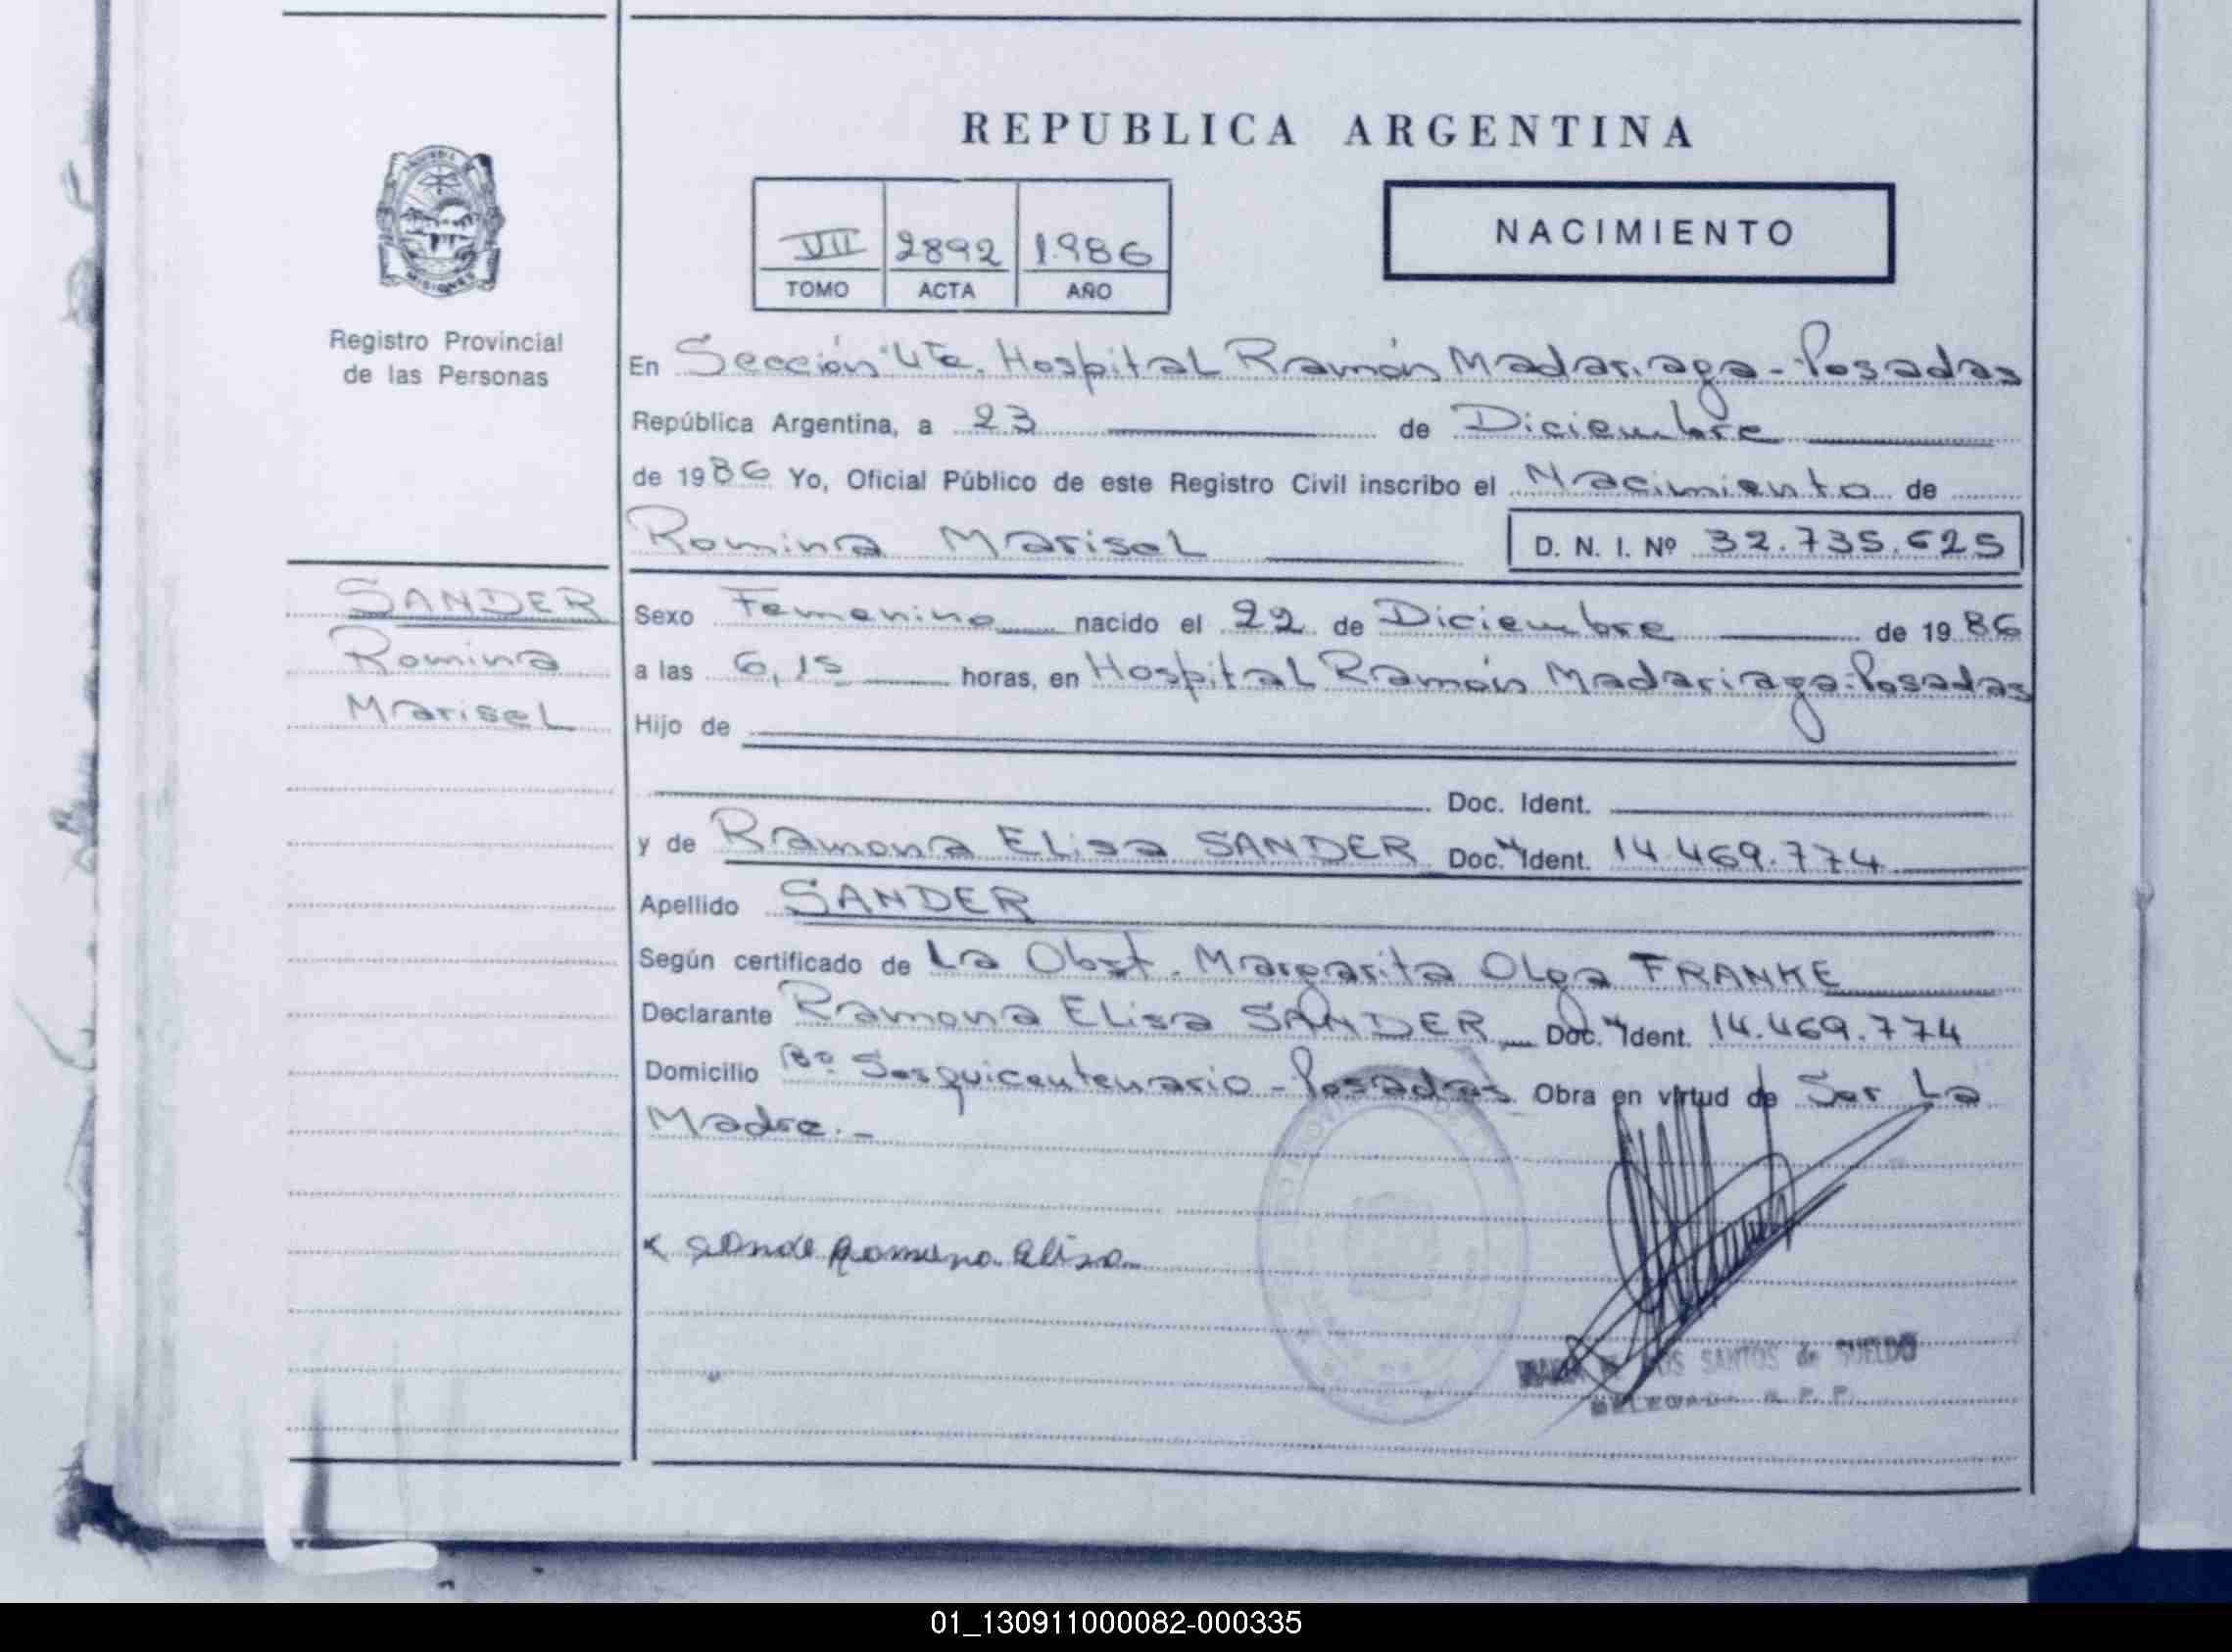 REPUBLICA ARGENTINA
VII 2892 1986
TOMO ACTA AÑO
NACIMIENTO
MISIONES
Registro Provincial
de las Personas
En Sección 4ta. Hospital Ramón Madariaga - Posadas
República Argentina, a 23 de Diciembre
de 1986 Yo, Oficial Público de este Registro Civil inscribo el Nacimiento de
Romina Marisol
D. N. I. Nº 32.735.625
SANDER
Romina
Marisol
Sexo Femenino nacido el 22 de Diciembre de 1986
a las 6,15 horas, en Hospital Ramón Madariaga-Posadas
Hijo de
Doc. Ident.
y de Ramona Elisa SANDER Doc. Ident. 14.469.774
Apellido SANDER
Según certificado de La Obst. Margarita Olga FRANKE
Declarante Ramona Elisa SANDER Doc. Ident. 14.469.774
Domicilio Bº Sesquicentenario - Posadas Obra en virtud de Ser La
Madre. -
Sande Romana Elisa
SANTOS de SUELDO
01_130911000082-000335